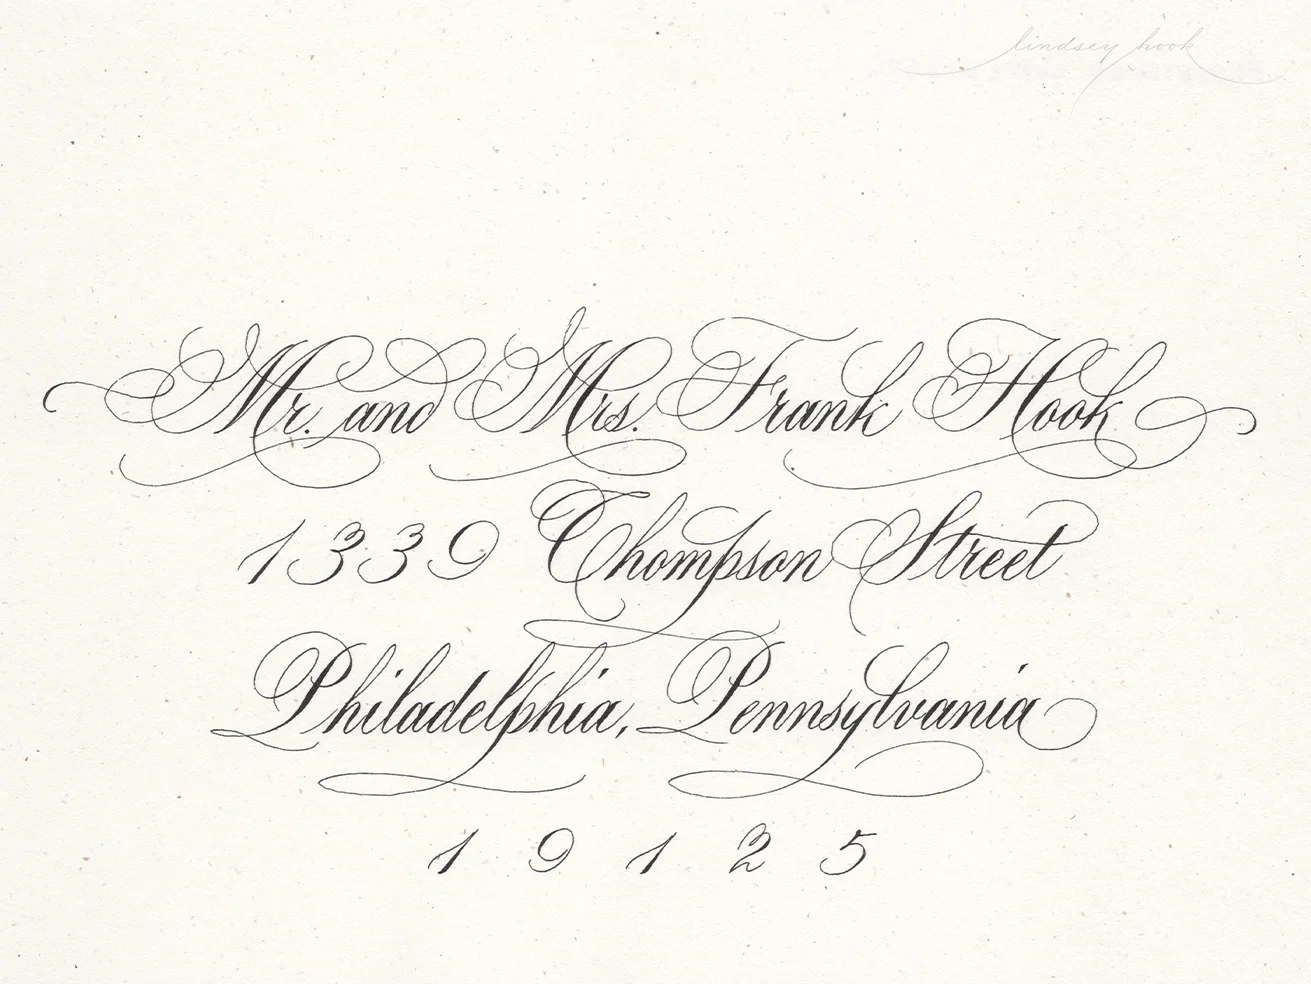 lindsey hook
Mr. and Mrs. Frank Hook
1339 Thompson Street
Philadelphia, Pennsylvania
19125